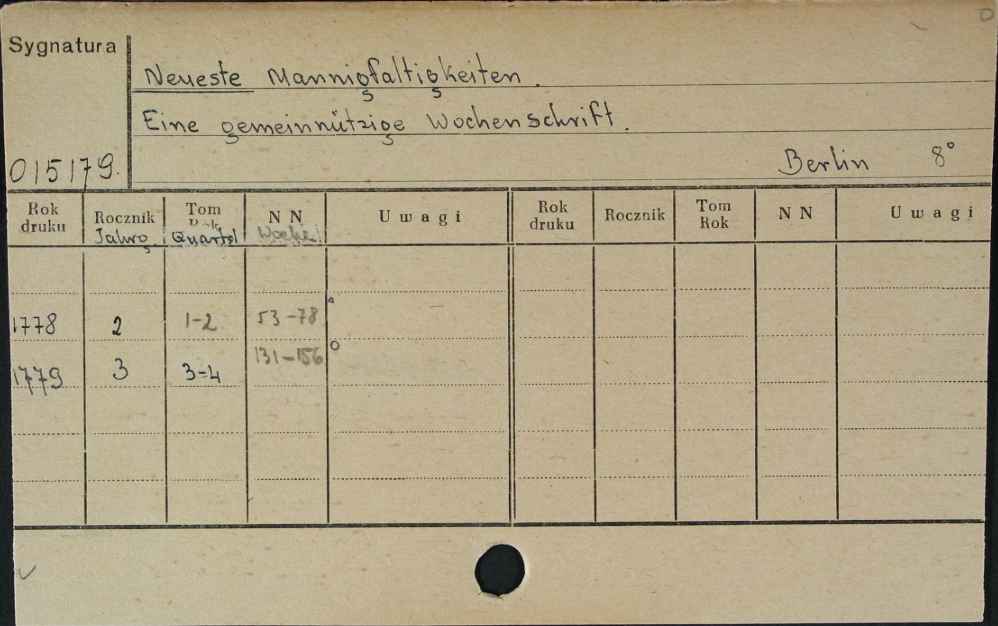 Sygnatura
Neueste Mannigfaltigkeiten.
Eine gemeinnützige Wochenschrift.
015179.
Berlin 8°
Rok druku Rocznik Tom Rok N N Uwagi Rok druku Rocznik Tom Rok N N Uwagi
Jahrg. Quartal Woche
1778 2 1-2 53-78
1779 3 3-4 131-156